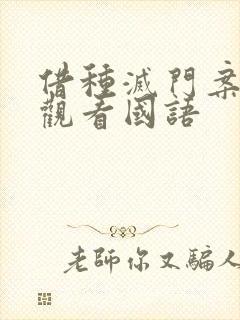 借種滅門案
觀看國語
老師你又騙人